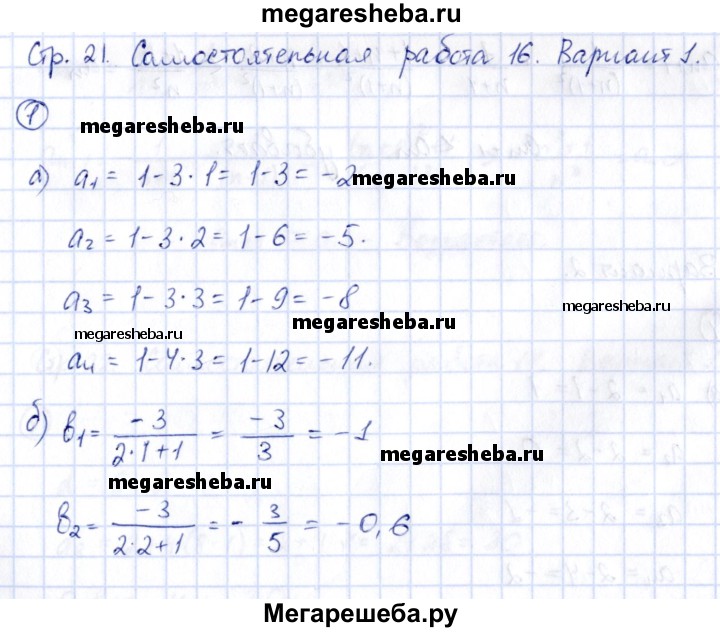 megaresheba.ru
Стр. 21. Самостоятельная работа 16. Вариант 1.
1
megaresheba.ru
а) a₁ = 1 - 3 · 1 = 1 - 3 = -2
megaresheba.ru
a₂ = 1 - 3 · 2 = 1 - 6 = -5.
a₃ = 1 - 3 · 3 = 1 - 9 = -8
megaresheba.ru
megaresheba.ru
megaresheba.ru
a₄ = 1 - 4 · 3 = 1 - 12 = -11.
б) b₁ = -3 / (2 · 1 + 1) = -3 / 3 = -1
megaresheba.ru
megaresheba.ru
b₂ = -3 / (2 · 2 + 1) = - 3 / 5 = -0,6
Мегарешеба.ру